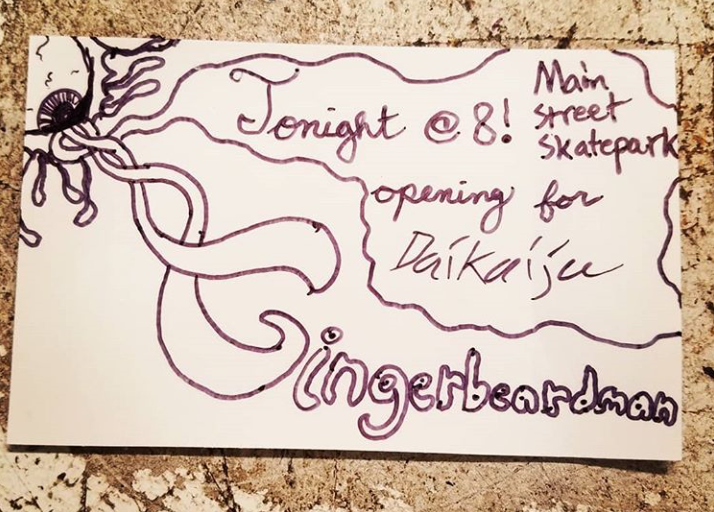 Tonight @ 8!
Main
Street
Skatepark
opening for
Daikaiju
Gingerbeardman